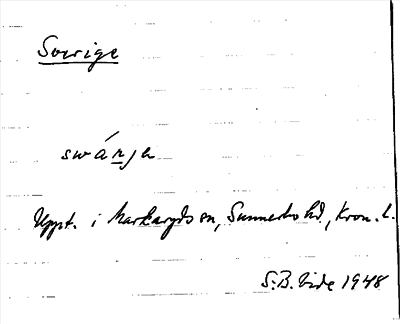 Sverige
swánja
Uppt. i Markaryds sn, Sunnerbo hd, Kron. l.
S. B. Vide 1948